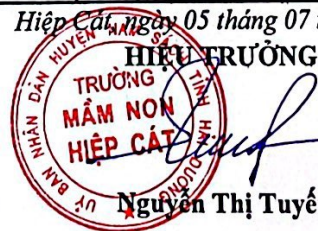 Hiệp Cát, ngày 05 tháng 07
HIỆU TRƯỞNG
ỦY BAN NHÂN DÂN HUYỆN NAM SÁCH TỈNH HẢI DƯƠNG
TRƯỜNG
MẦM NON
HIỆP CÁT
Nguyễn Thị Tuyế